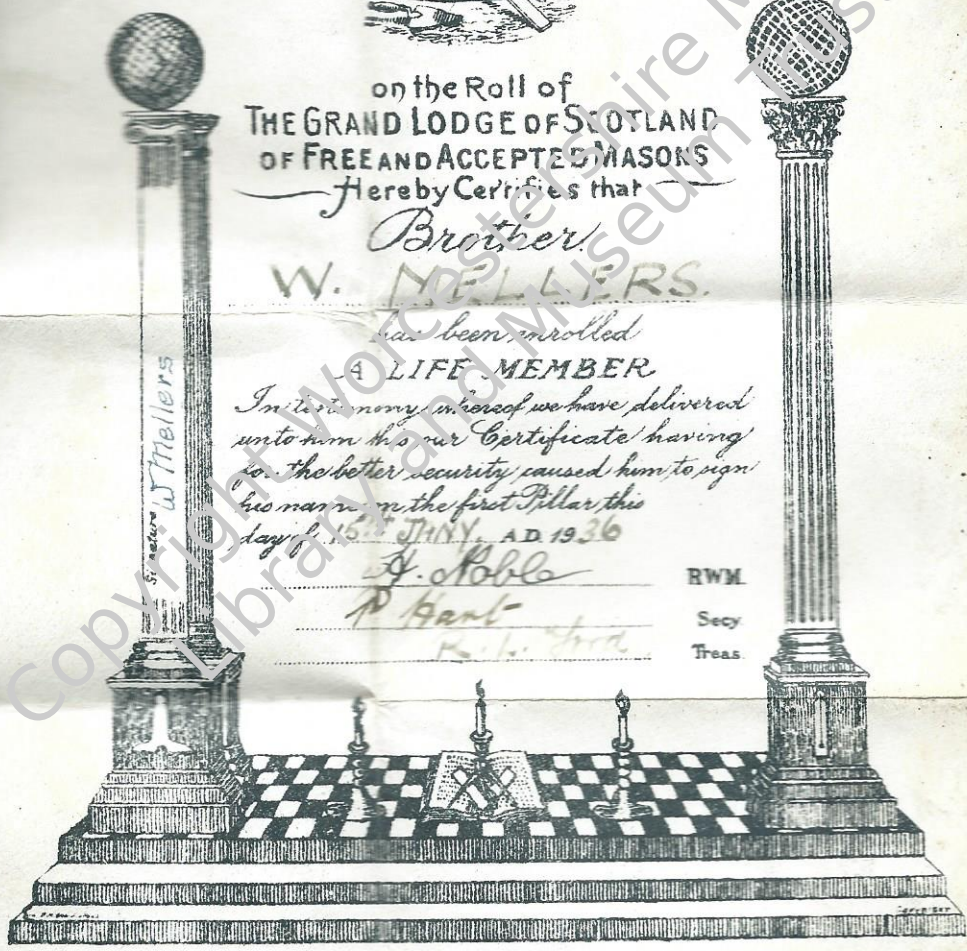 on the Roll of
THE GRAND LODGE OF SCOTLAND
OF FREE AND ACCEPTED MASONS
Hereby Certifies that
Brother
W. MELLERS.
has been enrolled
A LIFE MEMBER
In testimony whereof we have delivered
unto him this our Certificate having
for the better security caused him to sign
his name on the first Pillar this
day of 15th JANY. A.D. 1936
H. Noble RWM.
P Hart Secy.
R. L. Treas.
Signature W Mellers
Copyright Worcestershire
Library and Museum Trust